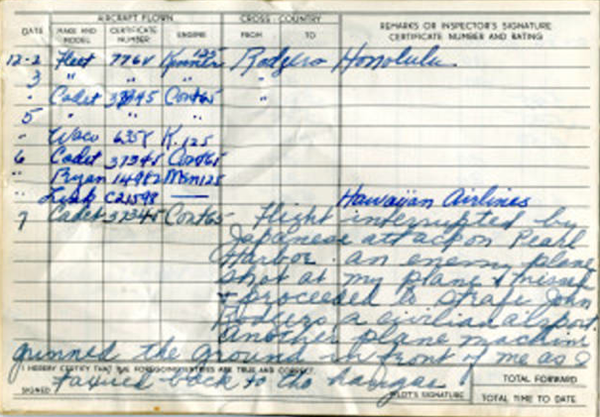 AIRCRAFT FLOWN CROSS-COUNTRY
DATE MAKE AND MODEL CERTIFICATE NUMBER ENGINE FROM TO REMARKS OR INSPECTOR'S SIGNATURE CERTIFICATE NUMBER AND RATING
12-2 Fleet 776V Kinner 125 Rodgers Honolulu
3 " " " "
" Cadet 37345 Cont65 "
5 " " "
" Waco 635Y K. 125
6 Cadet 37345 Cont65
" Ryan 14982 Men125
" Lusk C21598 — Hawaiian Airlines
7 Cadet 37345 Cont65 Flight interrupted by
Japanese attack on Pearl
Harbor. an enemy plane
shot at my plane & missed
& proceeded to strafe John
Rodgers a civilian airport.
Another plane machine
gunned the ground in front of me as I
I HEREBY CERTIFY THAT THE FOREGOING ENTRIES ARE TRUE AND CORRECT.
taxied back to the hangar
SIGNED PILOT'S SIGNATURE
TOTAL FORWARD
TOTAL TIME TO DATE